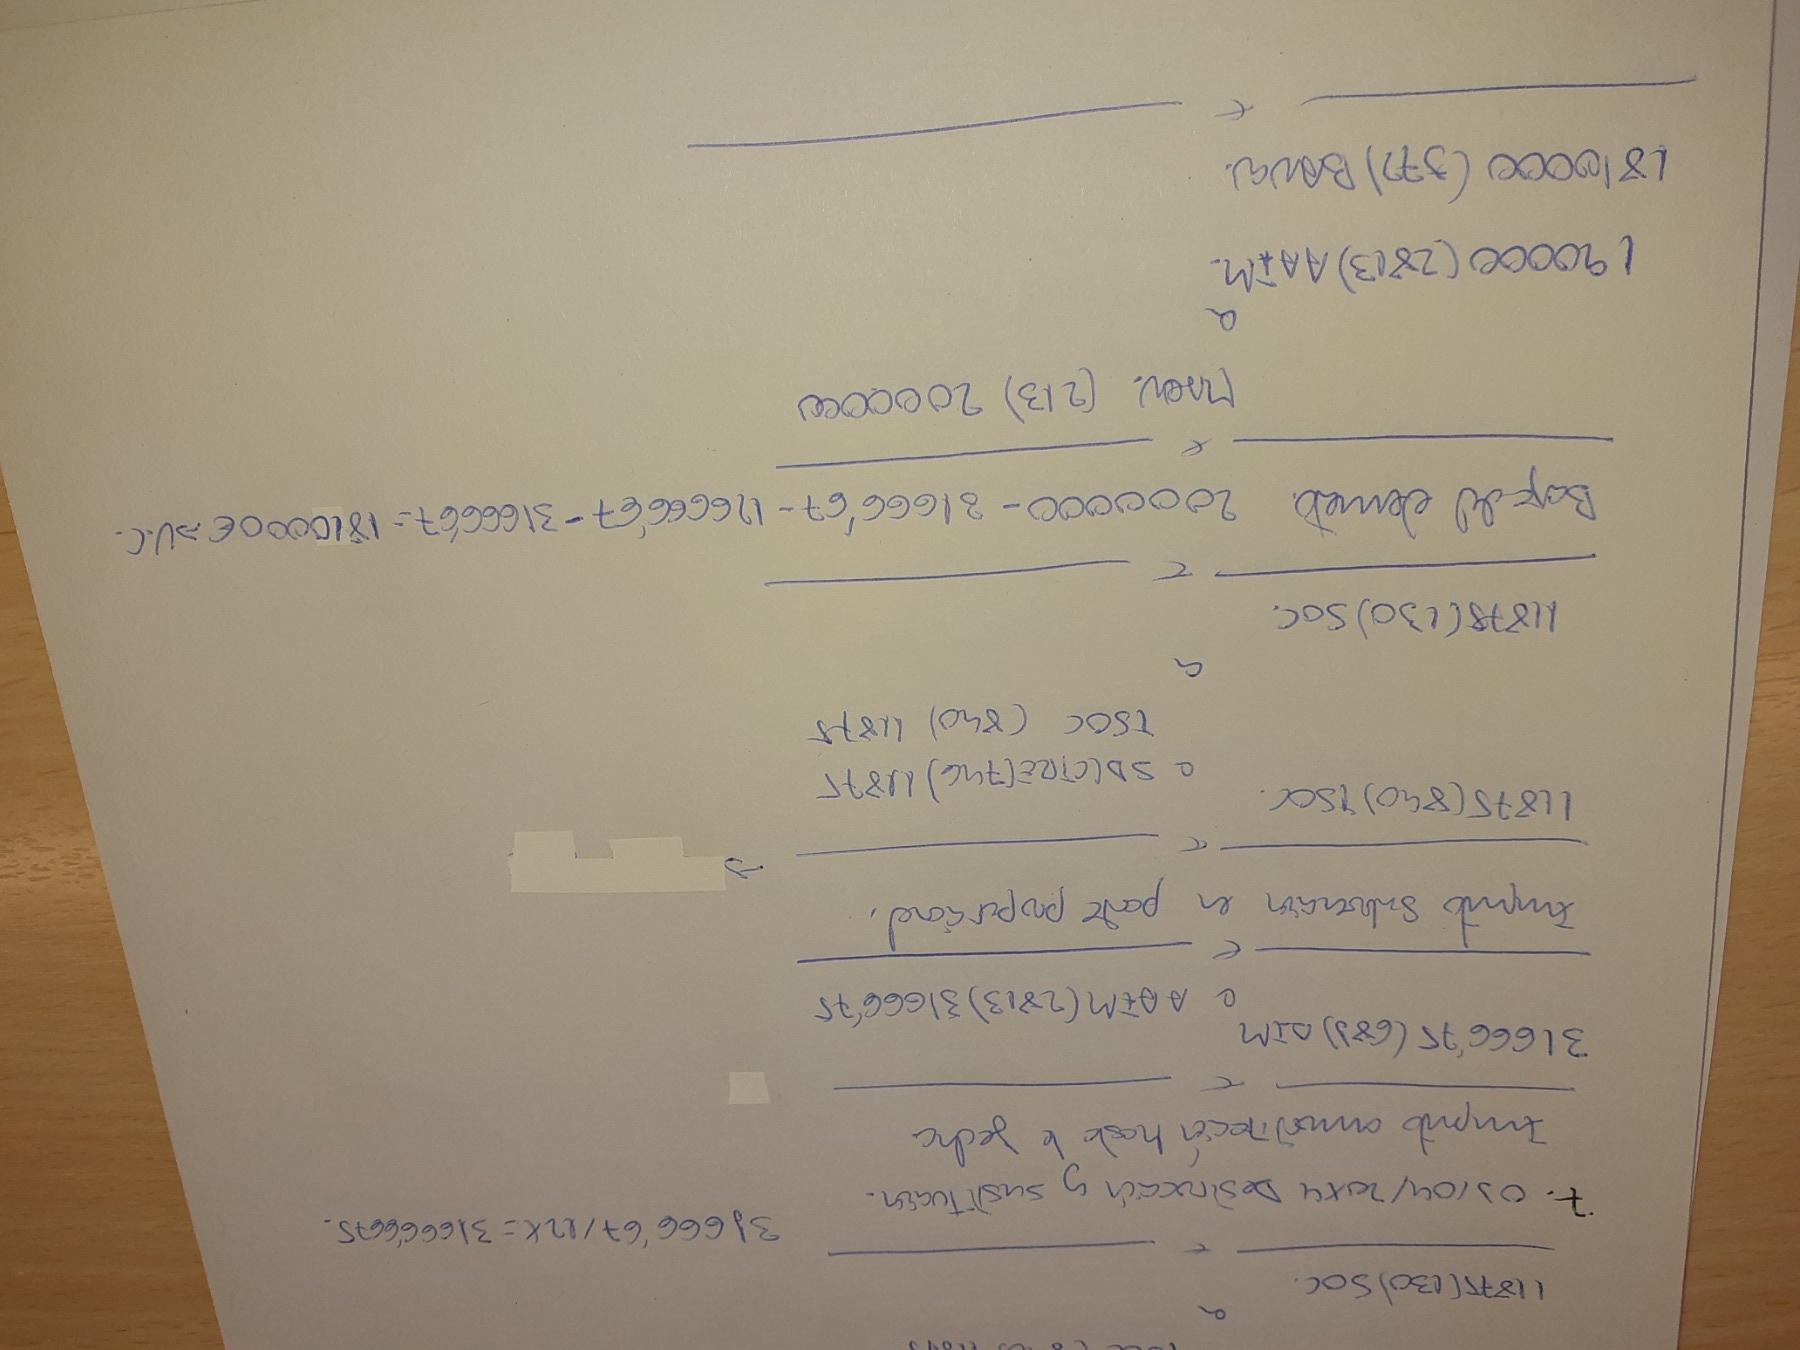 a
11875 (130) SOC.
31666,67/12x = 31666,6675.
7. 03/04/20X4 Desinversión y sustitución.
Importe amortización hasta la fecha
31666,75 (681) AIM
a AAIM (2813) 31666,75
Importe subvención en parte proporcional.
11875 (840) TSOC.
a SDCTRE (746) 11875
TSOC (840) 11875
a
11875 (130) SOC.
Baja del elemento. 2000000 - 31666,67 - 126666,67 - 31666,67 = 1810000€ → V.C.
Maqu. (213) 2000000
a
190000 (2813) AAIM.
1810000 (572) Banco.